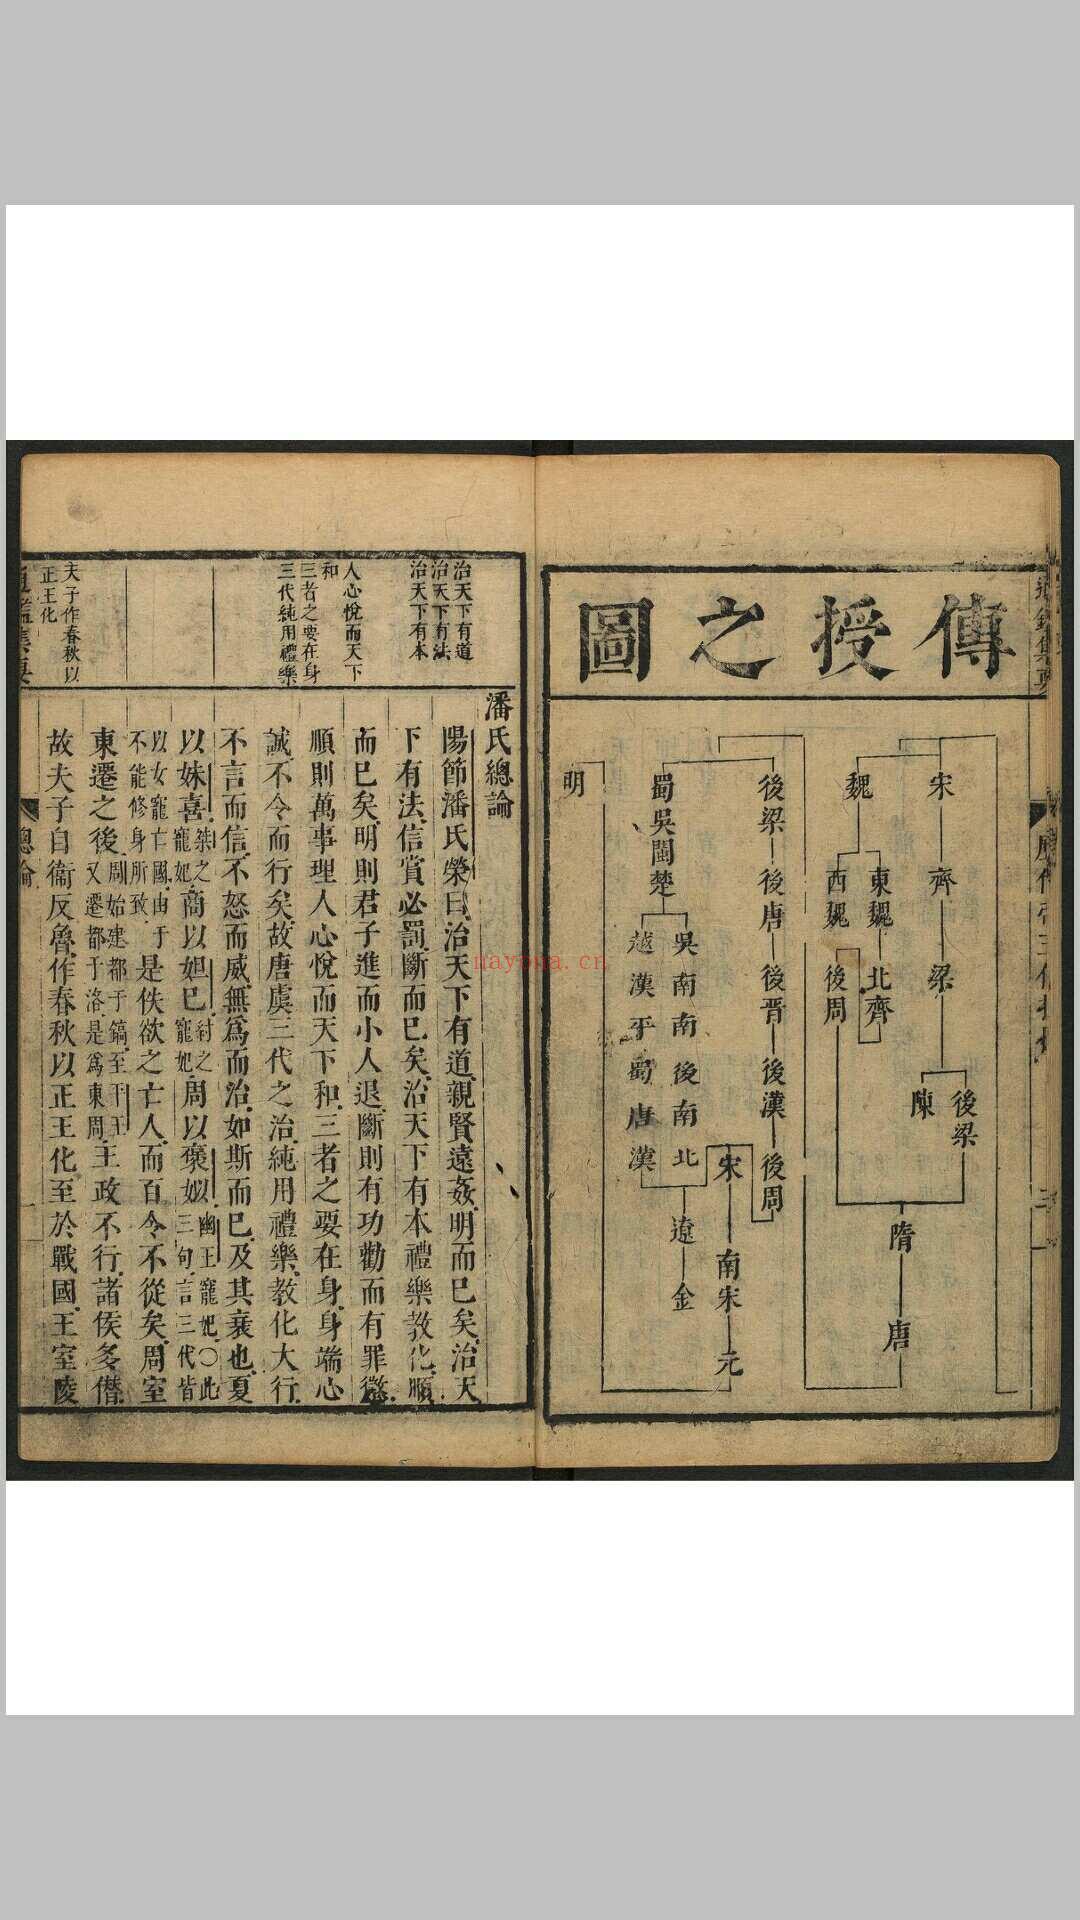 傳授之圖
宋
齊
梁
後梁
陳
魏
東魏
西魏
北齊
後周
隋
唐
後梁
後唐
後晋
後漢
後周
蜀吳閩楚
吳南南後南北
越漢平蜀唐漢
宋
南宋
元
遼
金
明
治天下有道
治天下有法
治天下有本
人心悅而天下
和
三者之要在身
三代純用禮樂
夫子作春秋以
正王化
潘氏總論
陽節潘氏榮曰治天下有道親賢遠姦明而已矣治天
下有法信賞必罰斷而已矣治天下有本禮樂教化順
而已矣明則君子進而小人退斷則有功勸而有罪懲
順則萬事理人心悅而天下和三者之要在身身端心
誠不令而行矣故唐虞三代之治純用禮樂教化大行
不言而信不怒而威無爲而治如斯而已及其衰也夏
以妹喜桀之寵妃商以妲已紂之寵妃周以褒姒幽王寵妃〇此三句言三代皆
以女寵亡國由于不能修身所致是佚欲之亡人而百令不從矣周室
東遷之後周始建都于鎬至平王又遷都于洛是爲東周王政不行諸侯多僭
故夫子自衞反魯作春秋以正王化至於戰國王室陵
總論
nayona.cn